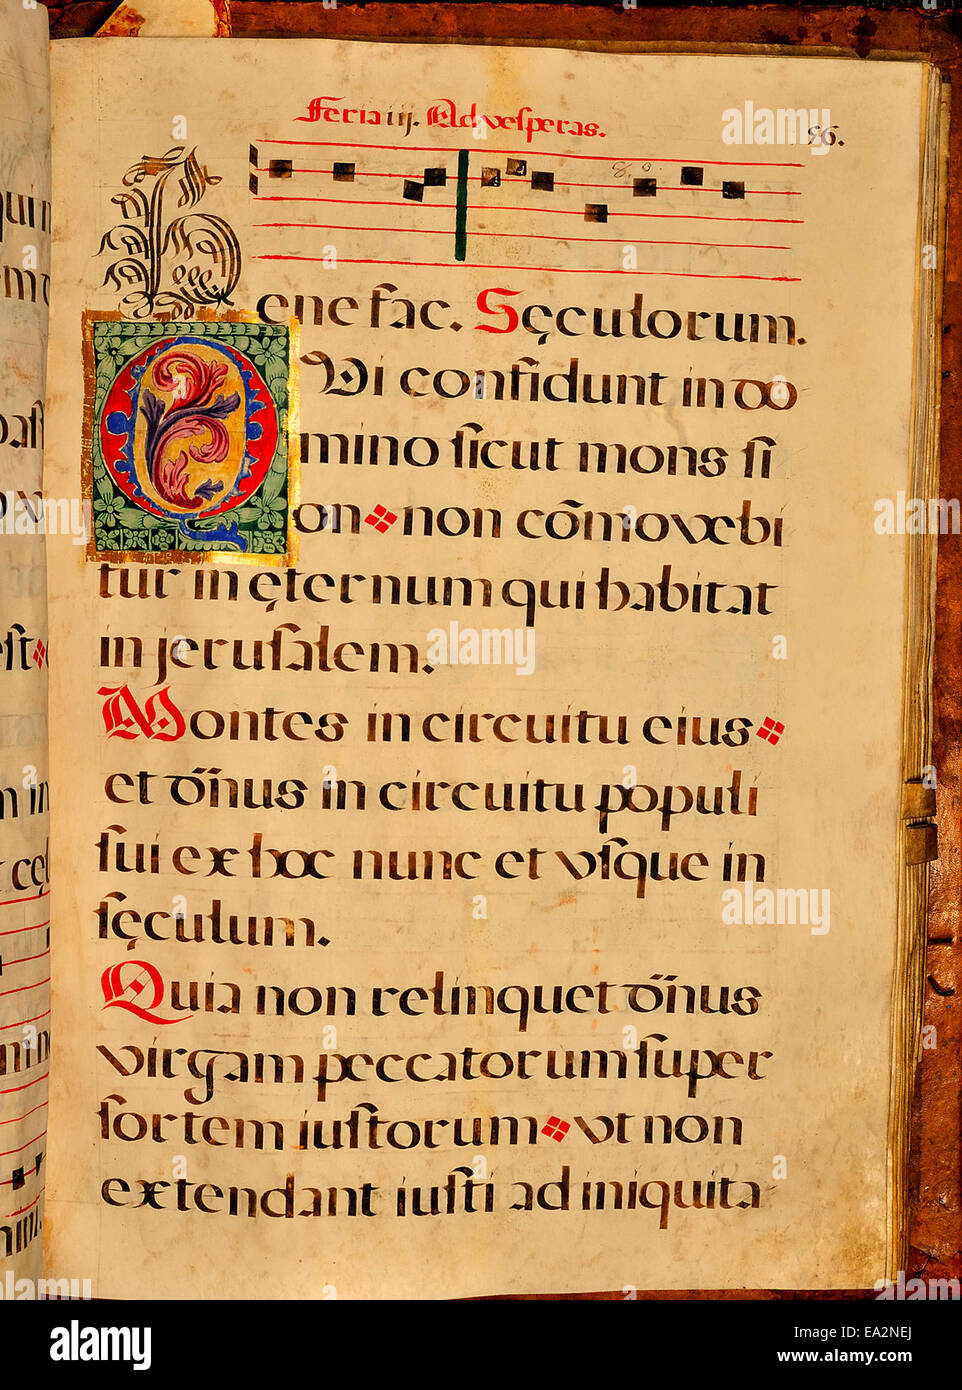 Feria iij. Ad vesperas.
86.
Bene fac. Sęculorum.
QVi confidunt in do
mino sicut mons si
on non cōmovebi
tur in ęternum qui habitat
in jerusalem.
Montes in circuitu eius
et dn̄us in circuitu populi
sui ex hoc nunc et vsque in
sęculum.
Quia non relinquet dn̄us
virgam peccatorum super
sortem iustorum vt non
extendant iusti ad iniquita
alamy
Image ID: EA2NEJ
www.alamy.com